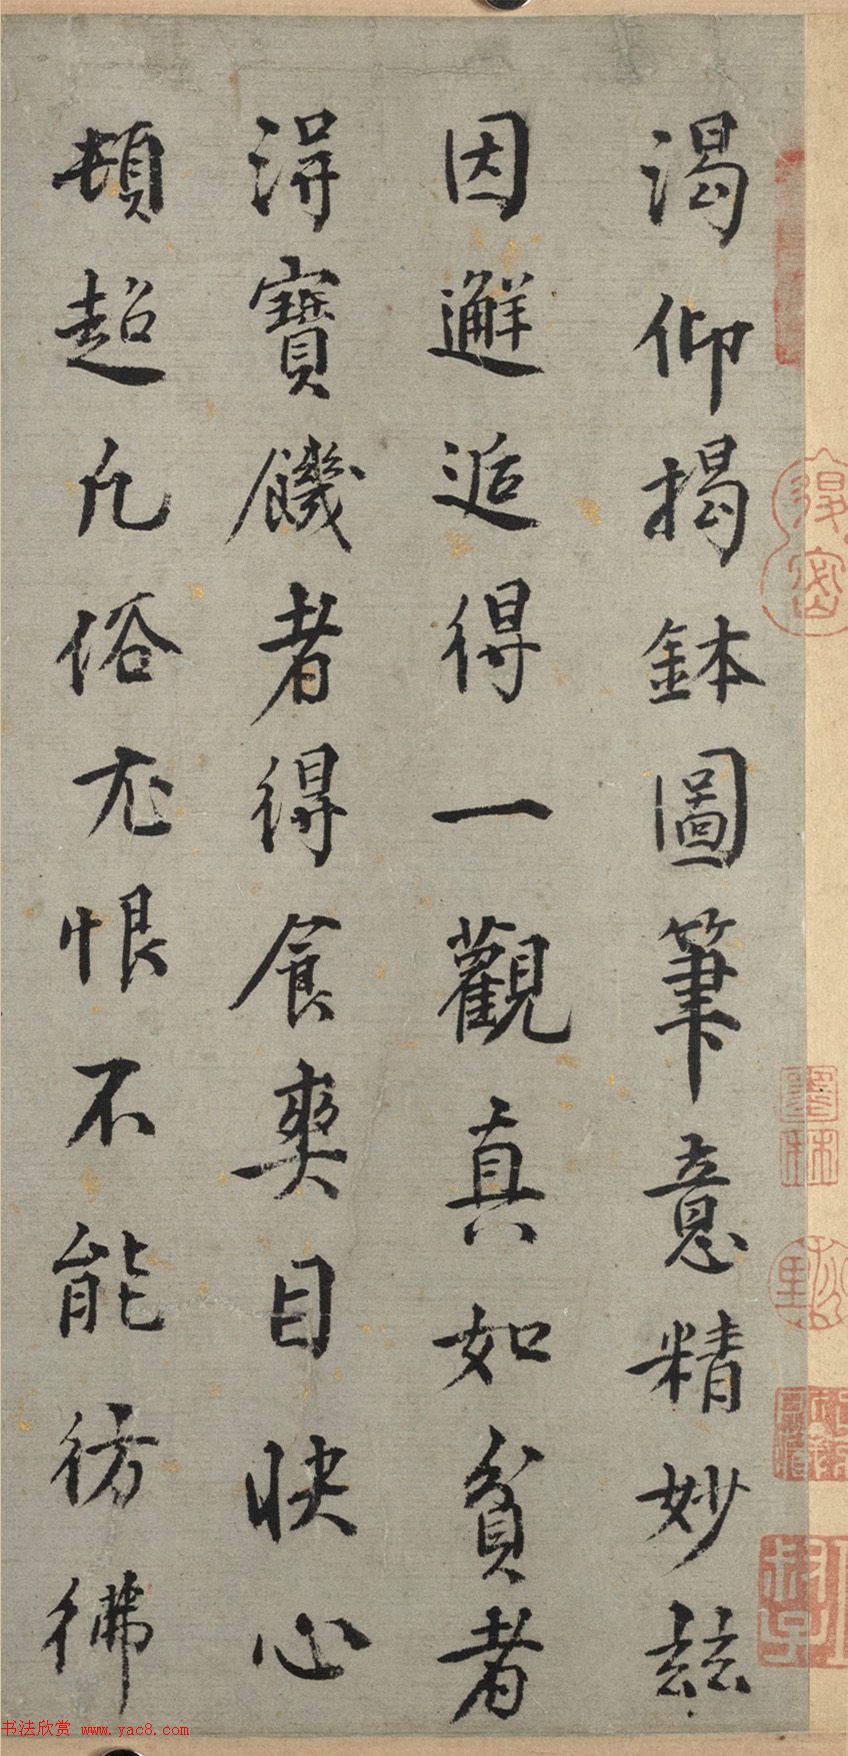 渴仰揭鉢圖筆意精妙兹
因邂逅得一觀真如貧者
得寶饑者得食爽目快心
頓超凡俗尤恨不能彷彿
书法欣赏 www.yac8.com